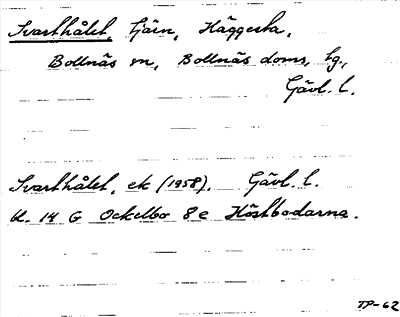 Svarthålet, tjärn, Häggesta,
Bollnäs sn, Bollnäs doms, hg.,
Gävl. l.
Svarthålet, ek (1958). Gävl. l.
bl. 14 G Ockelbo 8e Höstbodarna.
TP-62